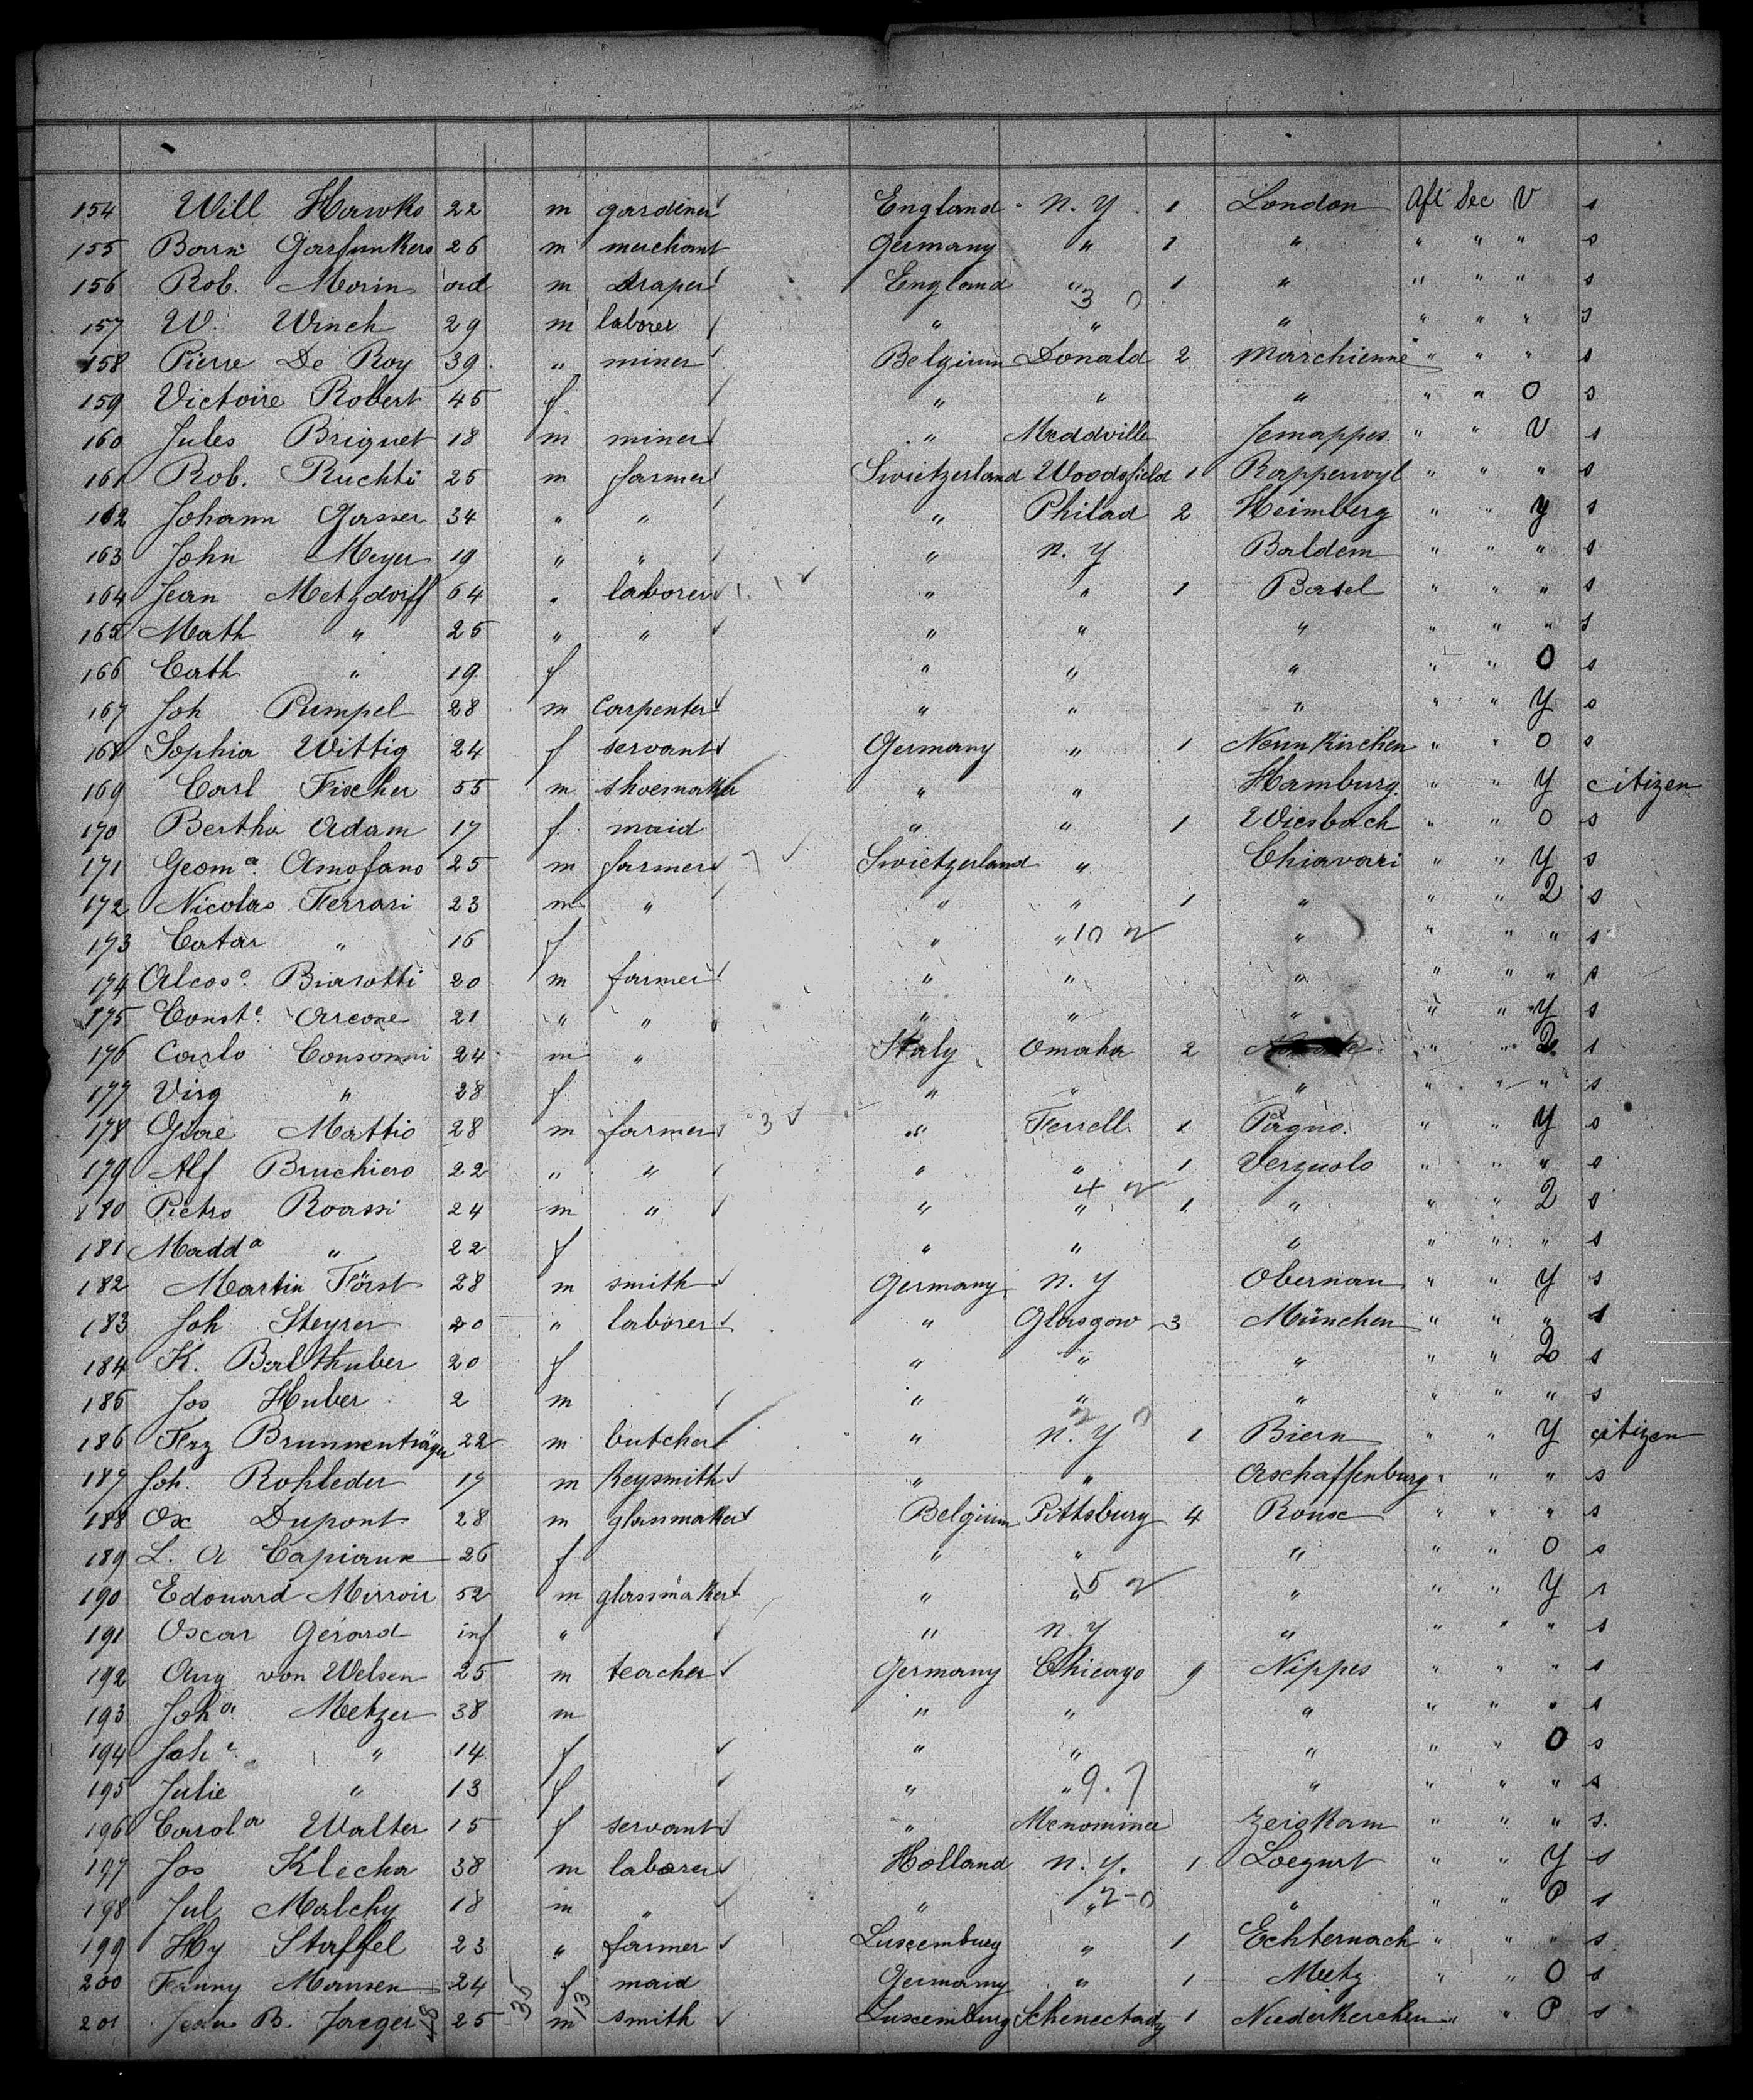 154 Will Hawks 22 m gardener England N.Y. 1 London Aft Sec V s
155 Barn Garfunkers 26 m merchant Germany " 1 " " " " s
156 Rob. Morin m draper England " 1 " " " " s
3 0
157 W. Winch 29 m laborer " " " " " " s
158 Pierre De Roy 39 " miner Belgium Donald 2 Marchienne " " " s
159 Victoire Robert 45 f " " " " " O s
160 Jules Briquet 18 m miner " Meddville Jemappes " " V s
161 Rob. Ruchti 25 m farmer Swietzerland Woodsfield 1 Rapperwyl " " " s
162 Johann Gasser 34 " " " Philad 2 Heimberg " " Y s
163 John Meyer 19 " " " N.Y Baldem " " " s
164 Jean Metzdorff 64 " laborer " " 1 Basel " " " s
165 Math " 25 " " " " " " " " s
166 Cath " 19 f " " " " " O s
167 Joh Pumpel 28 m Carpenter " " " " " Y s
168 Sophia Wittig 24 f servant Germany " 1 Neunkirchen " " O s
169 Carl Fischer 55 m shoemaker " " Hamburg. " " Y citizen
170 Bertha Adam 17 f maid " " 1 Wiesbach " " O s
171 Geom a. Amofano 25 m farmer Swietzerland " Chiavari " " Y s
172 Nicolas Ferrari 23 m " " " 1 " " " 2 s
173 Catar " 16 f " " 10 " " " " s
174 Alcos o. Biasotti 20 m farmer " " " " " " s
175 Const e. Arcone 21 " " " " " " " Y s
176 Carlo Consonni 24 m " Italy Omaha 2 " " 2 s
177 Virg " 28 f " " " " " " s
178 Mattio 28 m farmer 3 " Ferrell 1 Pagno. " " Y s
179 Alf Bruchiero 22 " " " " 1 Verzuolo " " " s
4
180 Pietro Roassi 24 m " " " 1 " " " 2 s
181 Madd a " 22 f " " " " " " s
182 Martin Först 28 m smith Germany N.Y Obernau " " Y s
183 Joh Steyrer 20 " laborer " Glasgow 3 München " " " s
184 K. Balthuber 20 f " " " " " 2 s
185 Jos Huber 2 m " " " " " " s
186 Frz Brunnenträger 22 m butcher " N.Y 1 Biern " " Y citizen
187 Joh. Rohleder 17 m Keysmith " " Aschaffenburg " " " s
188 Ox Dupont 28 m glasmaker Belgium Pittsburg 4 Roux " " " s
189 L. A Capiaux 26 f " " " " " O s
190 Edouard Mirroir 52 m glassmaker " " 5 " " " Y s
191 Oscar Gérard inf " " N.Y " " " " s
192 Aug von Welsen 25 m teacher Germany Chicago 9 Nippes " " " s
193 Joh a. Metzer 38 m " " " " " " s
194 " 14 f " " " " " O s
195 Julie " 13 f " " 9.7 " " " " s
196 Carol a Walter 15 f servant " Menominee Zeiskam " " " s.
197 Jos Klecha 38 m laborer Holland N.Y. 1 " " Y s
198 Jul Malchy 18 m " " " 2-0 " " " P s
199 Hy Staffel 23 " farmer Luxemburg " 1 Echternach " " " s
200 Fanny Mansen 24 f maid Germany " 1 Metz " " O s
201 B. Jaeger 25 m smith Luxemburg Schenectady 1 Niederkerchen " " P s
48 35 13